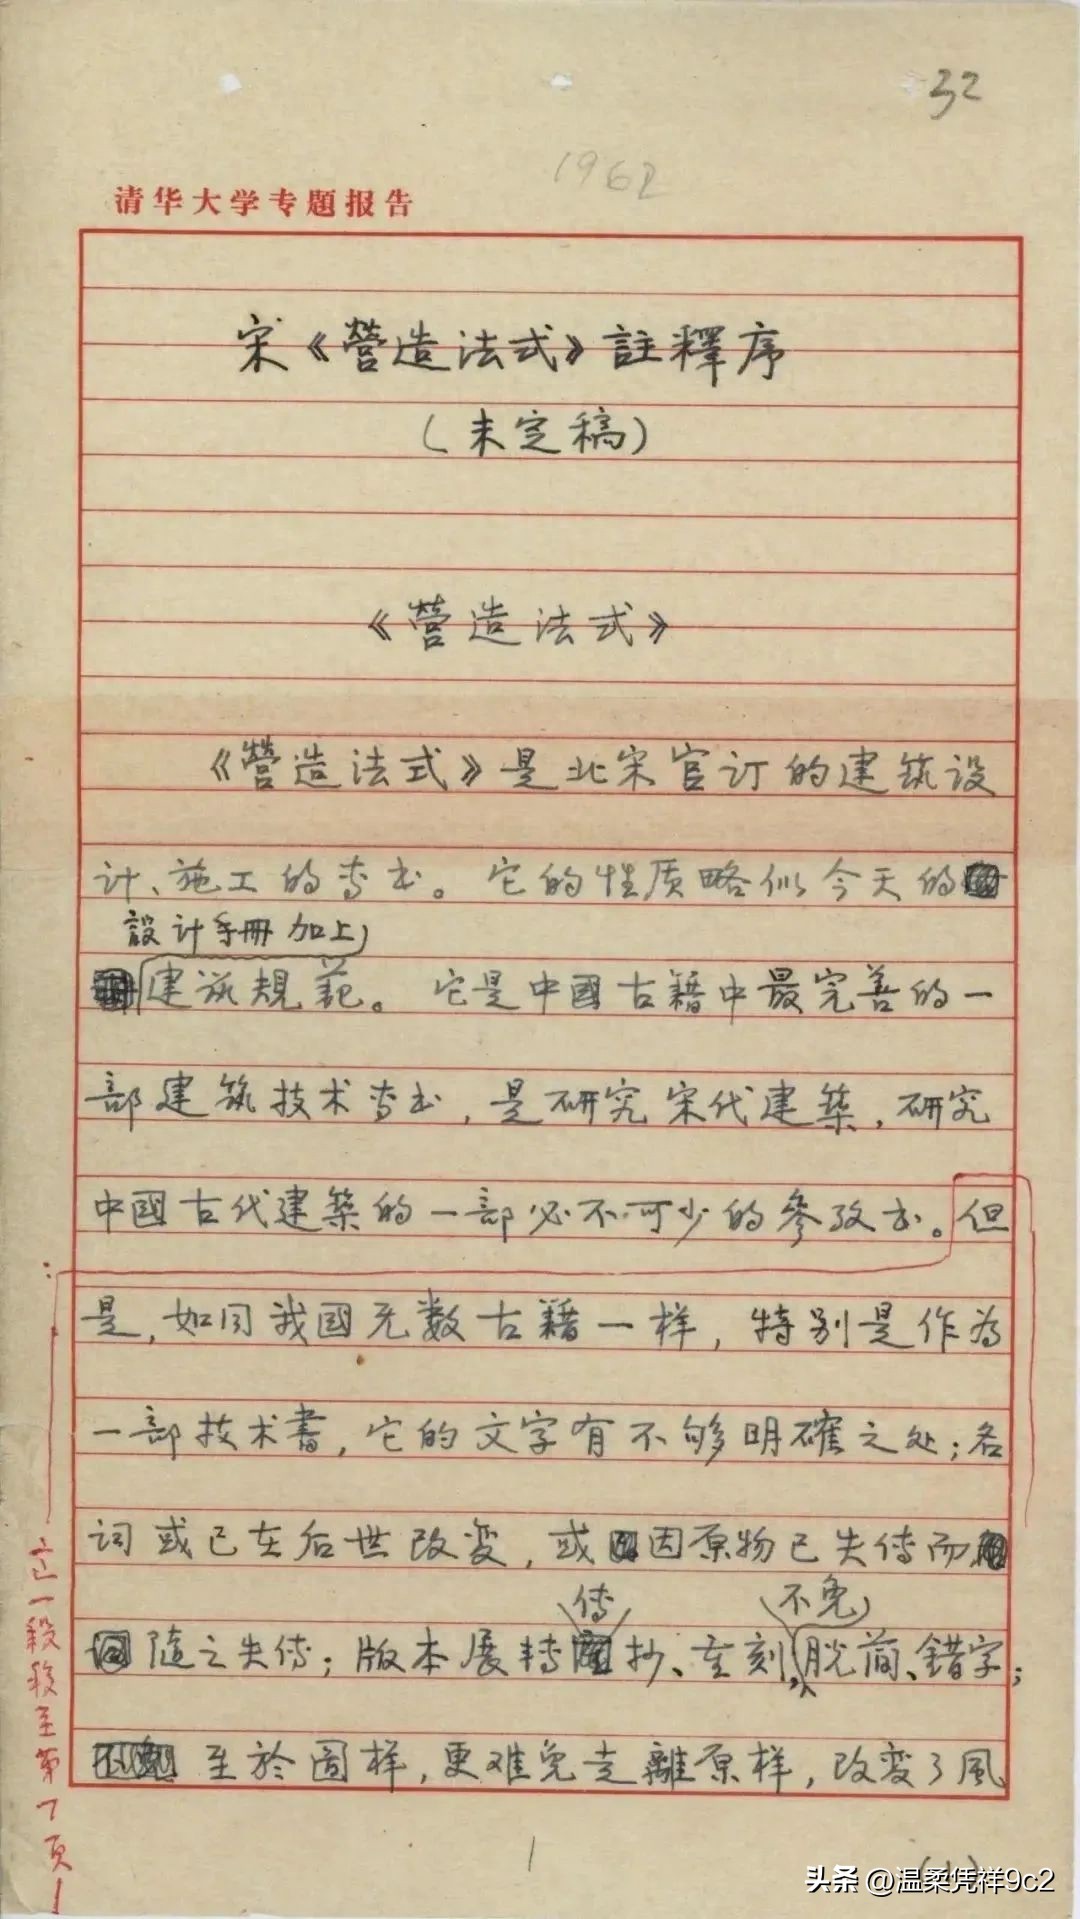 32
1962
清华大学专题报告
宋《營造法式》註釋序
(未定稿)
《營造法式》
《營造法式》是北宋官订的建筑设
计、施工的专书。它的性质略似今天的
設计手冊加上
建筑規范。它是中國古籍中最完善的一
部建筑技术专书,是研究宋代建築,研究
中國古代建築的一部必不可少的參攷书。但
是,如同我國无数古籍一样,特别是作为
一部技术書,它的文字有不够明確之处;名
词或已在后世改变,或因原物已失传而
传 不免
随之失传;版本展转抄、重刻,脱简、錯字;
至於圖样,更难免走離原样,改变了風
这一段移至第7页
1
(1)
头条 @温柔凭祥9c2